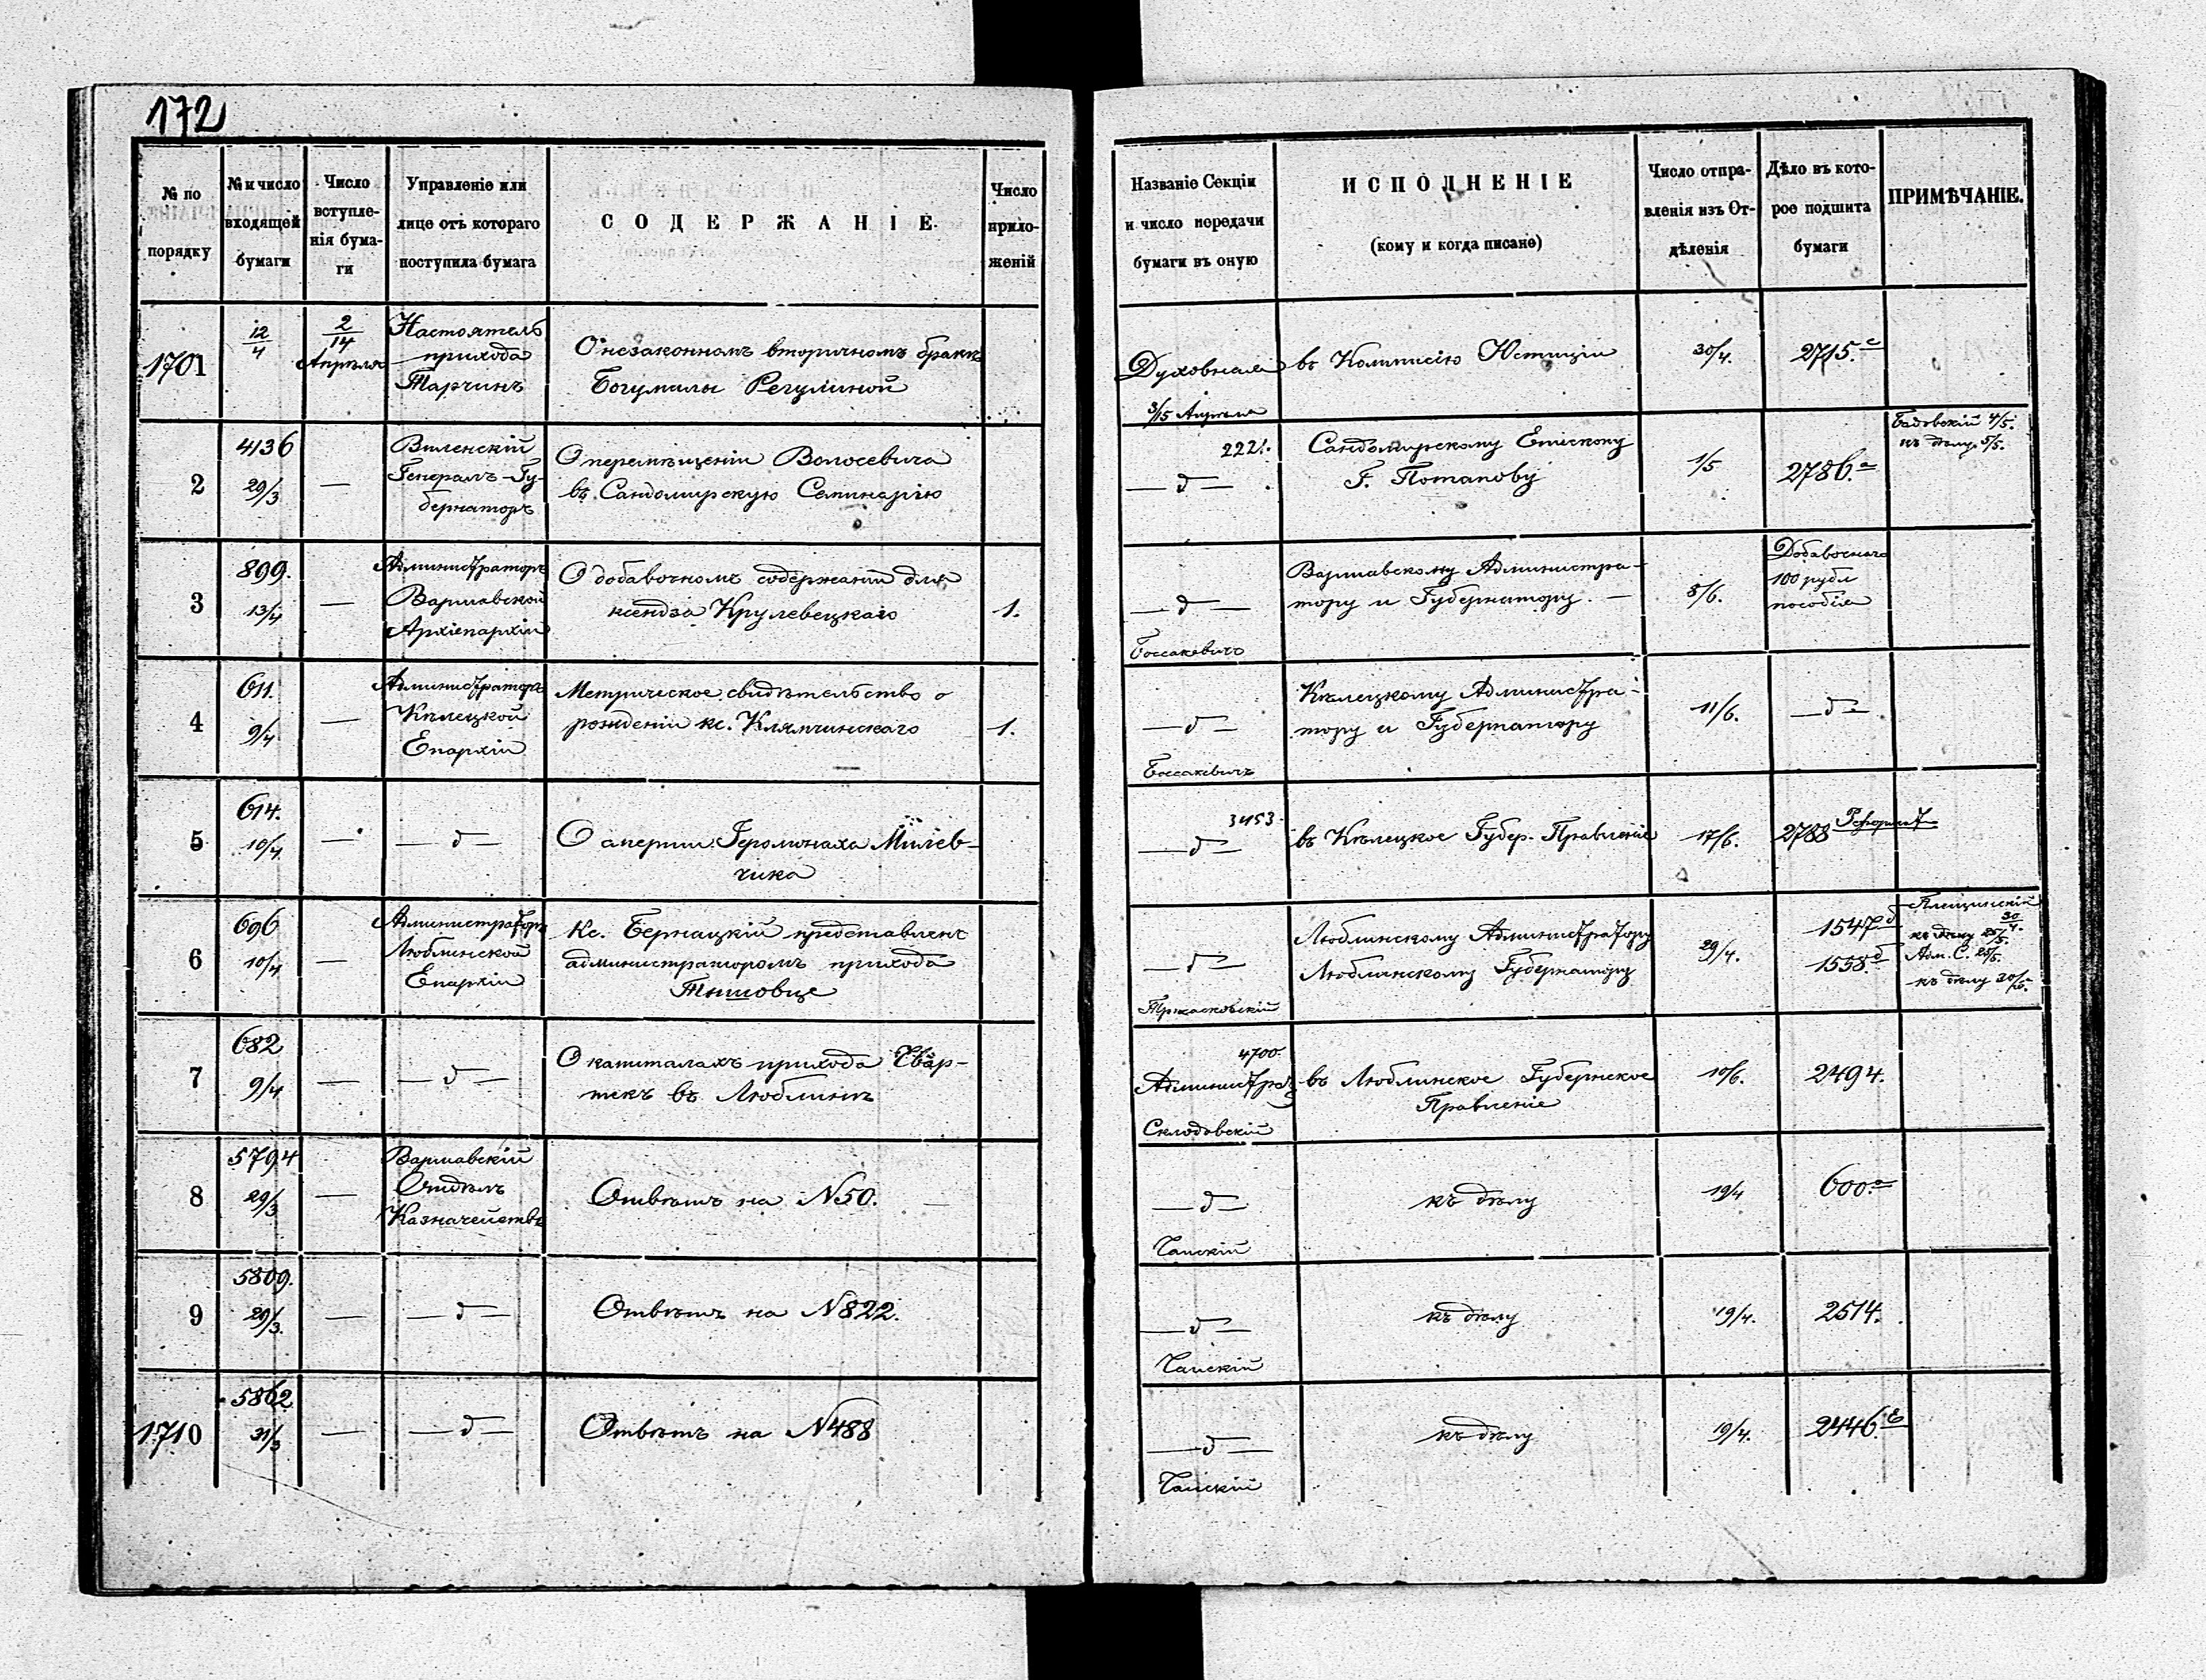 172
№ по порядку
№ и число входящей бумаги
Число вступле-нія бума-ги
Управленіе или лице отъ котораго поступила бумага
СОДЕРЖАНІЕ.
Число прило-женій
Названіе Секціи и число передачи бумаги въ оную
ИСПОЛНЕНІЕ
(кому и когда писано)
Число отпра-вленія изъ От-дѣленія
Дѣло въ кото-рое подшита бумаги
ПРИМѢЧАНІЕ.
1701
12/4
2/14 Апрѣля
Настоятель
прихода
Тарчинъ
О незаконномъ вторичномъ бракѣ
Богумилы Регулиной
Духовная
3/15 Апрѣля
въ Коммисію Юстиціи
30/4.
2715. с
2
4136
29/3
—
Виленскій
Генералъ-Гу-
бернаторъ
О перемѣщеніи Волосевича
въ Сандомирскую Семинарію
2221.
— д —
Сандомирскому Епископу
Г. Потапову
1/5
2786. а
4/5.
къ дѣлу 5/5.
3
899.
13/4
—
Администраторъ
Варшавской
Архіепархіи
О добавочномъ содержаніи для
ксендза Крулевецкаго
1.
— д —
Боссакевичъ
Варшавскому Администра-
тору и Губернатору. —
8/6.
Добавочнаго
100 рубл
пособія
4
611.
9/4
—
Администраторъ
Кѣлецкой
Епархіи
Метрическое свидѣтельство о
рожденіи кс. Клямчинскаго
1.
— д —
Боссакевичъ
Кѣлецкому Администра-
тору и Губернатору
11/6.
— д —
5
614.
10/4
—
— д —
О смерти Іеромонаха Милев-
чика
3453.
— д —
въ Кѣлецкое Губер. Правленіе
17/6.
2788 Реформат
6
696
10/4
—
Администраторъ
Люблинской
Епархіи
Кс. Бернацкій представленъ
администраторомъ прихода
Тышовце
— д —
Тржасковскій
Люблинскому Администратору
Люблинскому Губернатору
29/4.
1547 д
1558. д
Плещинскій 30/4.
къ дѣлу 25/5.
Адм. С. 25/5.
къ дѣлу 30/5.
7
682
9/4
—
— д —
О капиталахъ прихода Чвар-
текъ въ Люблинѣ
4700.
Администрац
Склодовскій
въ Люблинское Губернское
Правленіе
10/6.
2494.
8
5794
29/3
—
Варшавскій
Отдѣлъ
Казначейства
Отвѣтъ на №50.
— д —
Чайскій
къ дѣлу
19/4
600. а
9
5809.
29/3.
—
— д —
Отвѣтъ на №822.
— д —
Чайскій
къ дѣлу
19/4.
2514.
1710
5862
31/3
—
— д —
Отвѣтъ на №488
— д —
Чайскій
къ дѣлу
19/4.
2446.